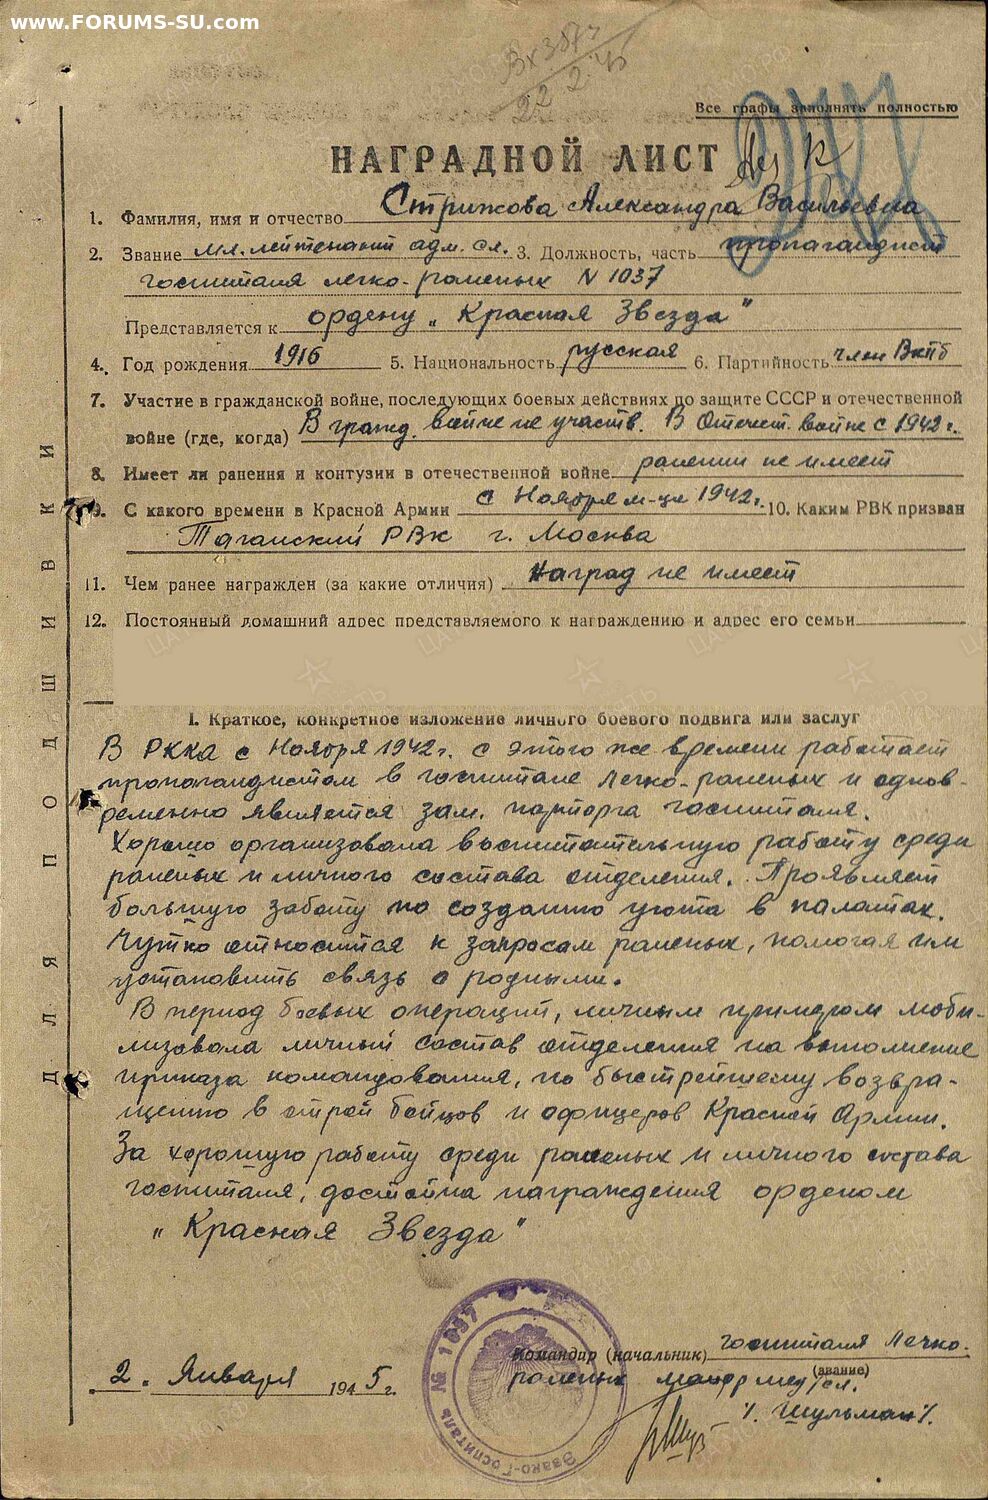 www.FORUMS-SU.com
Вх387
22 2 45
Все графы заполнять полностью
НАГРАДНОЙ ЛИСТ
1. Фамилия, имя и отчество Стрижова Александра Васильевна
2. Звание мл. лейтенант адм. сл. 3. Должность, часть пропагандист
госпиталя легко-раненых N 1037
Представляется к ордену „Красная Звезда"
4. Год рождения 1916 5. Национальность русская 6. Партийность член ВКПб
7. Участие в гражданской войне, последующих боевых действиях по защите СССР и отечественной
войне (где, когда) В гражд. войне не участв. В Отечест. войне с 1942 г.
8. Имеет ли ранения и контузии в отечественной войне ранении не имеет
9. С какого времени в Красной Армии с Ноября м-ца 1942 г. 10. Каким РВК призван
Таганский РВК г. Москва
11. Чем ранее награжден (за какие отличия) Наград не имеет
12. Постоянный домашний адрес представляемого к награждению и адрес его семьи
I. Краткое, конкретное изложение личного боевого подвига или заслуг
В РККА с Ноября 1942 г. с этого же времени работает
пропогандистом в госпитале Легко-раненых и однов-
ременно является зам. парторга госпиталя.
Хорошо организовала воспитательную работу среди
раненых и личного состава отделения. Проявляет
большую заботу по созданию уюта в палатах.
Чутко относится к запросам раненых, помогая им
установить связь с родными.
В период боевых операций, личным примером моби-
лизовала личный состав отделения на выполнение
приказа командования, по быстрейшему возвра-
щению в строй бойцов и офицеров Красной Армии.
За хорошую работу среди раненых и личного состава
госпиталя, достойна награждения орденом
„Красная Звезда"
Командир (начальник) госпиталя Легко-
(звание)
раненых майор мед/сл.
2. Января 1945 г.
/. Шульман /.
Эвако-Госпиталь № 1037
ДЛЯ ПОДШИВКИ